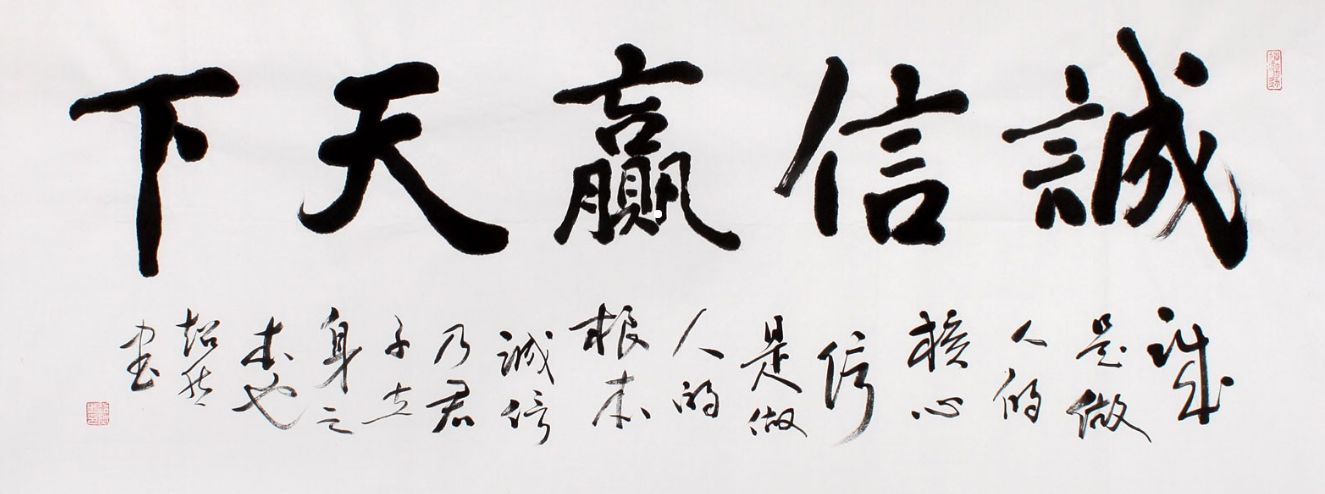 誠信贏天下
诚
是做
人的
核心
信
是做
人的
根本
誠信
乃君
子立
身之
本也
超然
书